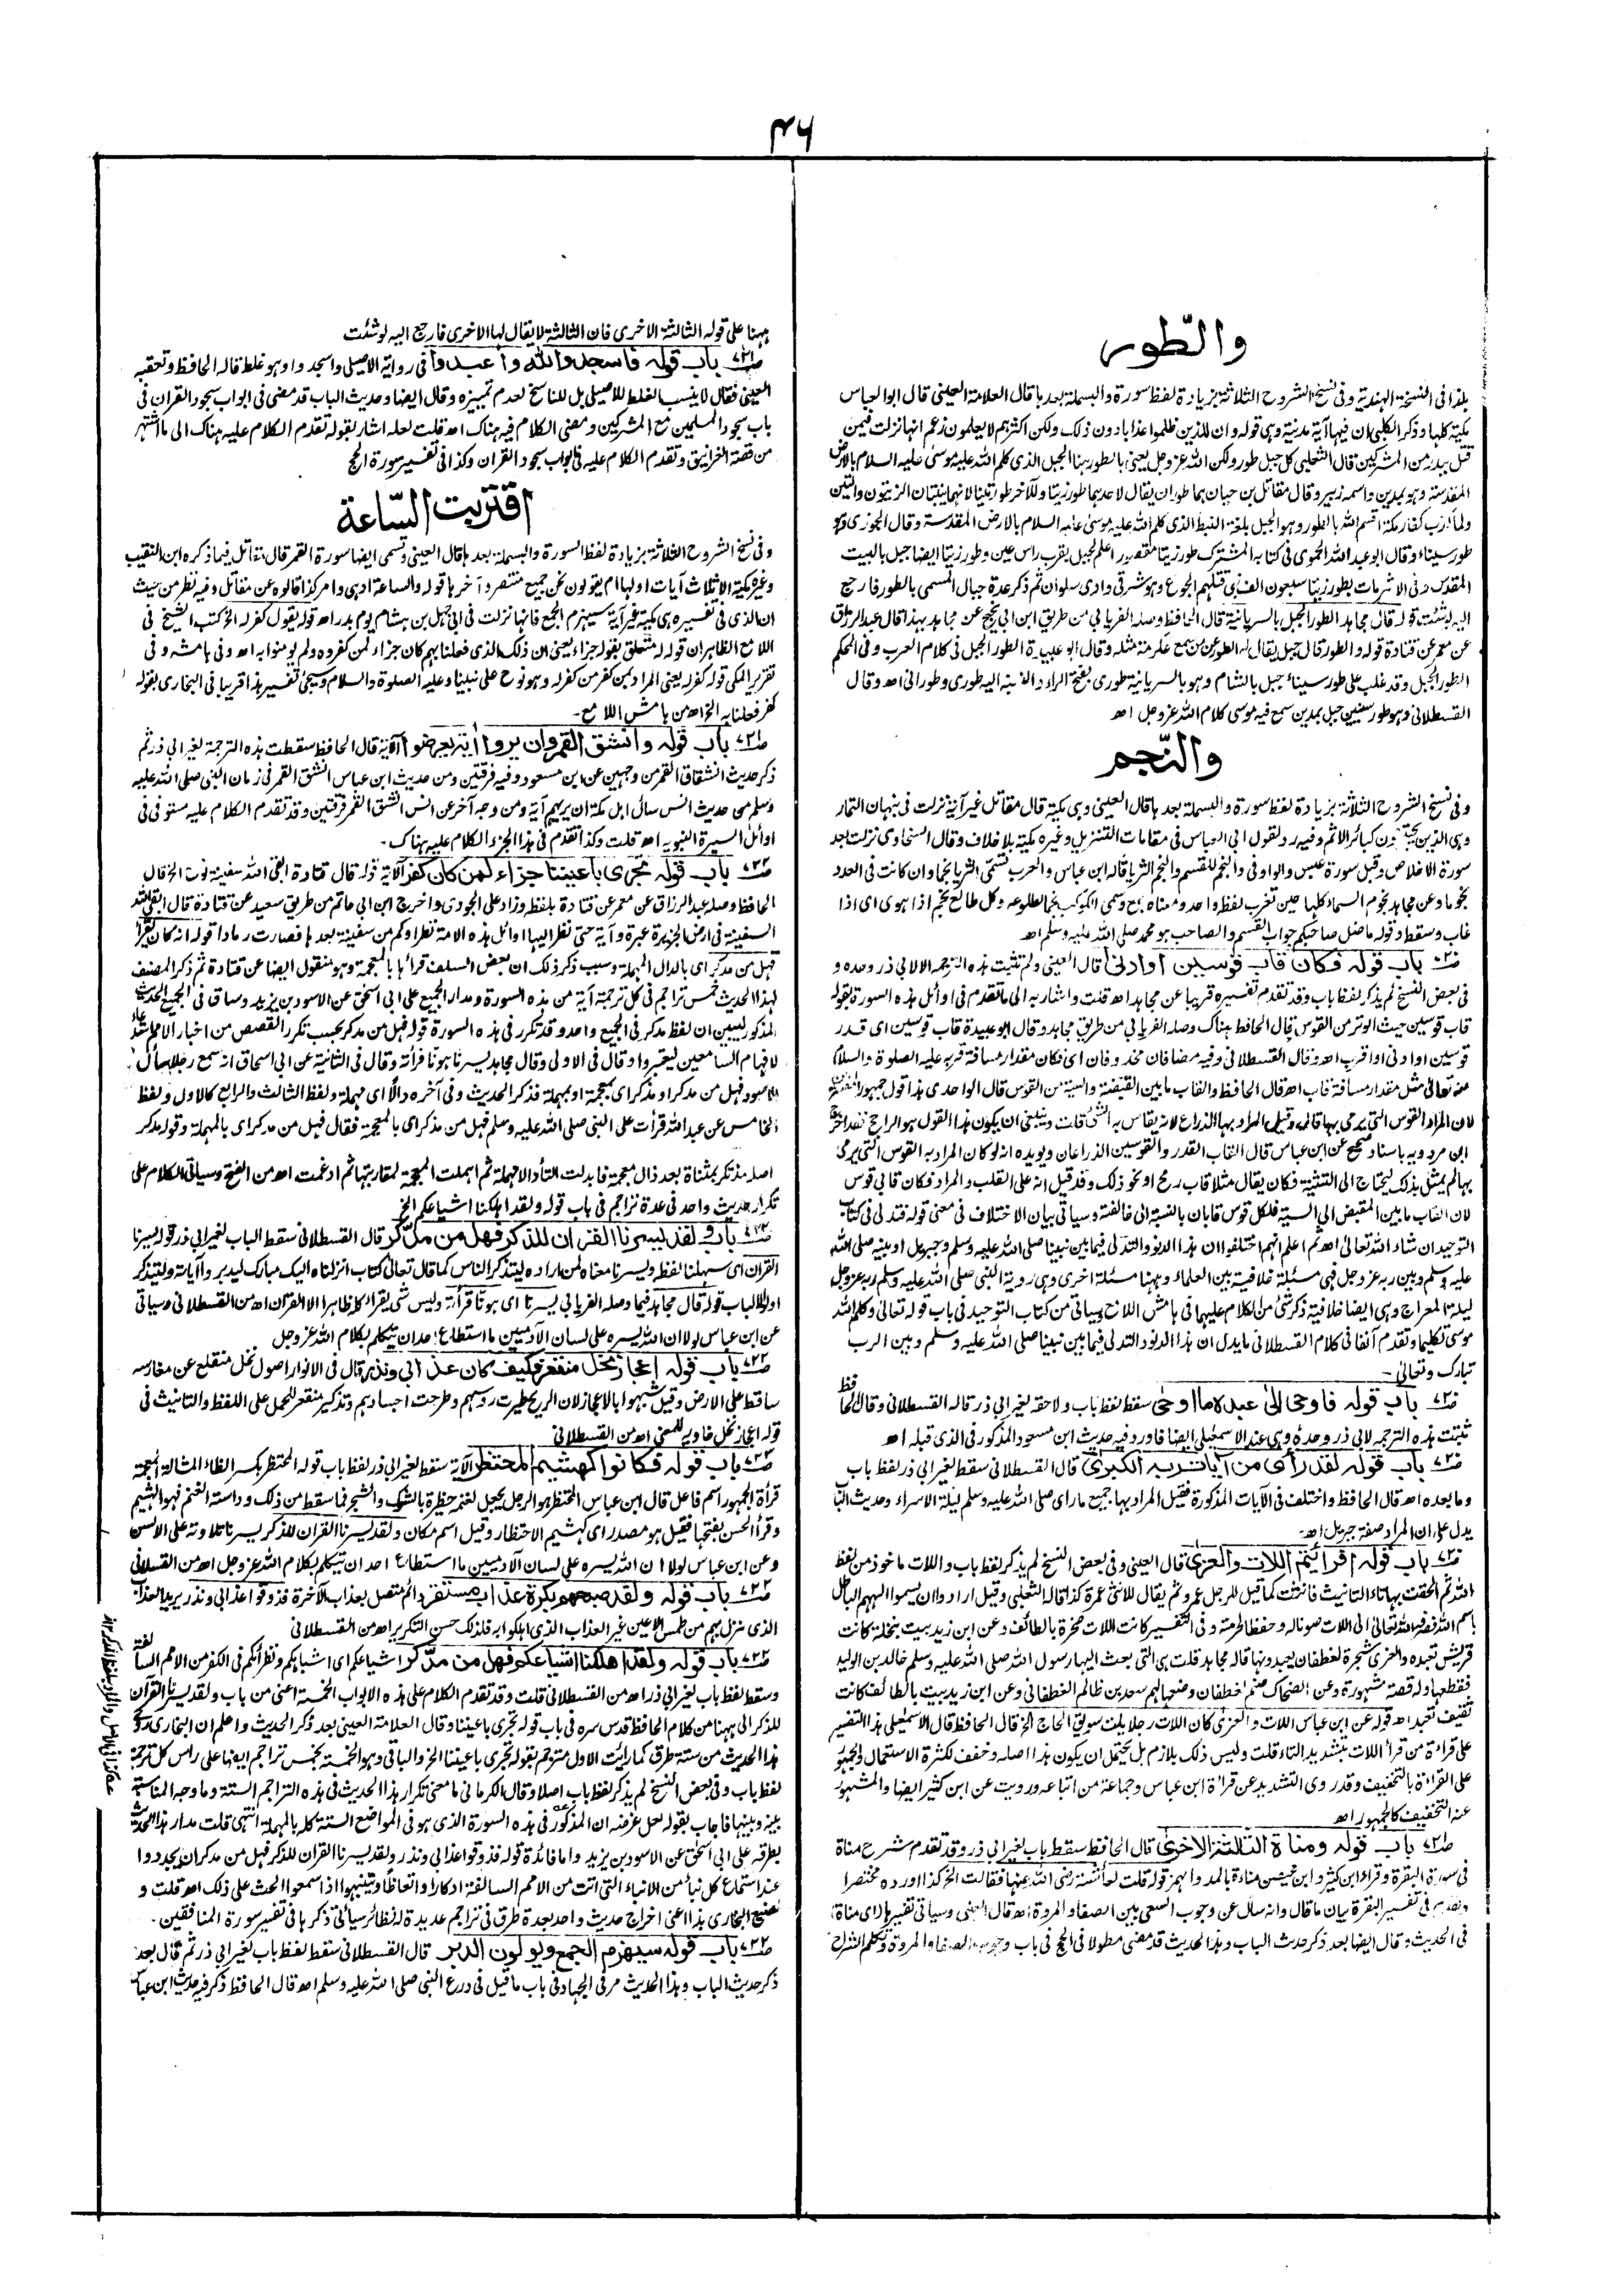 ۴۶
والطور
هكذا في النسخة الهندية وفي نسخ الشروح الثلاثة بزيادة لفظ سورة والبسملة بعدها قال العلامة العيني قال ابو العباس
مكية كلها وذكر الكلبي ان فيها آية مدنية وهي قوله وان للذين ظلموا عذابا دون ذلك ولكن اكثرهم لا يعلمون زعم انها نزلت فيمن
قتل ببدر من المشركين قال الثعلبي كل جبل طور ولكن الله عز وجل يعني بالطور هنا الجبل الذي كلم الله عليه موسى عليه السلام بالارض
المقدسة وهو بمدين واسمه زبير وقال مقاتل بن حيان هما طوران يقال لاحدهما طور زيتا وللآخر طور تينا لانهما ينبتان الزيتون والتين
ولما كذب كفار مكة اقسم الله بالطور وهو الجبل بلغة النبط الذي كلم الله عليه موسى عليه السلام بالارض المقدسة وقال الجوزي وهو
طور سيناء وقال ابو عبد الله الحموي في كتابه المشترك طور زيتا مقصور اعلم لجبل بقرب راس عين وطور زيتا ايضا جبل بالبيت
المقدس وفي الاثر مات بطور زيتا سبعون الف نبي قتلهم الجوع وهو شرقي وادي سلوان ثم ذكر عدة جبال المسمى بالطور فارجع
اليه لو شئت قوله قال مجاهد الطور الجبل بالسريانية قال الحافظ وصله الفريابي من طريق ابن ابي نجيح عن مجاهد بهذا قال عبد الرزاق
عن معمر عن قتادة قوله والطور قال جبل يقال له الطور عن من سمع عكرمة مثله وقال ابو عبيدة الطور الجبل في كلام العرب وفي المحكم
الطور الجبل وقد غلب على طور سيناء جبل بالشام وهو بالسريانية طوري بفتح الراء والنسبة اليه طوري وطوراني اهـ وقال
القسطلاني وهو طور سينين جبل بمدين سمع فيه موسى كلام الله عز وجل اهـ
والنجم
وفي نسخ الشروح الثلاثة بزيادة لفظ سورة والبسملة بعدها قال العيني وهي مكية قال مقاتل غير آية نزلت في نبهان التمار
وهي الذين يجتنبون كبائر الاثم وفيه رد لقول ابي العباس في مقامات التنزيل وغيره مكية بلا خلاف وقال السخاوي نزلت بعد
سورة الاخلاص وقبل سورة عبس والواو في والنجم للقسم والنجم الثريا قاله ابن عباس والعرب تسمى الثريا نجما وان كانت في العدد
نجوما وعن مجاهد نجوم السماء كلها حين تغرب لفظ واحد ومعناه جمع وسمى الكوكب نجما لطلوعه وكل طالع نجم اذا هوى اي اذا
غاب وسقط وقوله ما ضل صاحبكم جواب القسم والصاحب هو محمد صلى الله عليه وسلم اهـ
ص٧٢٠ باب قوله فكان قاب قوسين او ادنى قال العيني ولم تثبت هذه الترجمة الا لابي ذر وحده و
في بعض النسخ لم يذكر لفظ باب وقد تقدم تفسيره قريبا عن مجاهد اهـ قلت واشار به الى ما تقدم في اوائل هذه السورة بقوله
قاب قوسين حيث الوتر من القوس قال الحافظ هناك وصله الفريابي من طريق مجاهد وقال ابو عبيدة قاب قوسين اي قدر
قوسين او ادنى او اقرب اهـ وقال القسطلاني وفيه مضافان محذوفان اي فكان مقدار مسافة قربه عليه الصلوة والسلام
منه تعالى مثل مقدار مسافة قاب اهـ قال الحافظ والقاب ما بين القبضة والسية من القوس قال الواحدي هذا قول جمهور المفسرين
لان المراد القوس التي يرمى بها قال وقيل المراد بها الذراع لانه يقاس بها الشئ قلت وينبغي ان يكون هذا القول هو الراجح فقد اخرج
ابن مردويه باسناد صحيح عن ابن عباس قال القاب القدر والقوسين الذراعان ويؤيده انه لو كان المراد به القوس التي يرمى
بها لم يمثل بذلك ليحتاج الى التثنية فكان يقال مثلا قاب رمح او نحو ذلك وقد قيل انه على القلب والمراد فكان قابي قوس
لان القاب ما بين المقبض الى السية فلكل قوس قابان بالنسبة الى خالفته وسياتي بيان الاختلاف في معنى قوله فتدلى في كتاب
التوحيد ان شاء الله تعالى اهـ ثم اعلم انهم اختلفوا ان هذا الدنو والتدلي فيما بين نبينا صلى الله عليه وسلم وجبريل او بينه صلى الله
عليه وسلم وبين ربه عز وجل فهي مسئلة خلافية بين العلماء وههنا مسئلة اخرى وهي روية النبي صلى الله عليه وسلم ربه عز وجل
ليلة المعراج وهي ايضا خلافية ذكر شئ من الكلام عليهما في هامش اللامع وسياتي من كتاب التوحيد في باب قوله تعالى وكلم الله
موسى تكليما وتقدم آنفا في كلام القسطلاني ما يدل ان هذا الدنو والتدلي فيما بين نبينا صلى الله عليه وسلم وبين الرب
تبارك وتعالى۔
ص٧٢٠ باب قوله فاوحى الى عبده ما اوحى سقط لفظ باب ولاحقه لغير ابي ذر قاله القسطلاني وقال الحافظ
ثبتت هذه الترجمة لابي ذر وحده وهي عند الاسمعيلي ايضا فاورد فيه حديث ابن مسعود المذكور في الذي قبله اهـ
ص٧٢٠ باب قوله لقد رأى من آيات ربه الكبرى قال القسطلاني سقط لغير ابي ذر لفظ باب
وما بعده اهـ قال الحافظ واختلف في الآيات المذكورة فقيل المراد بها جميع ما رأى صلى الله عليه وسلم ليلة الاسراء وحديث الباب
يدل على ان المراد صفة جبريل اهـ۔
ص٧٢٠ باب قوله افرأيتم اللات والعزى قال العيني وفي بعض النسخ لم يذكر لفظ باب واللات ماخوذ من لفظ
الله ثم الحقت بها تاء التانيث فانثت كما قيل للرجل عمرو ثم يقال للانثى عمرة كذا قاله الثعلبي وقيل ارادوا ان يسموا الههم الباطل
باسم الله فصرفه الله تعالى الى اللات صونا له وحفظا لحرمته وفي التفسير كانت اللات صخرة بالطائف وعن ابن زيد بيت بنخلة كانت
قريش تعبده والعزى شجرة لغطفان يعبدونها قاله مجاهد قلت هي التي بعث اليها رسول الله صلى الله عليه وسلم خالد بن الوليد
فقطعها وله قصة مشهورة وعن الضحاك صنم لغطفان وضعها لهم سعد بن ظالم الغطفاني وعن ابن زيد بيت بالطائف كانت
ثقيف تعبده اهـ قوله عن ابن عباس اللات والعزى كان اللات رجلا يلت سويق الحاج الخ قال الحافظ قال الاسمعيلي هذا التفسير
على قراءة من قرأ اللات بتشديد التاء قلت وليس ذلك بلازم بل يحتمل ان يكون هذا اصله وخفف لكثرة الاستعمال والجمهور
على القراءة بالتخفيف وقد روى التشديد عن قراءة ابن عباس وجماعة من اتباعه ورويت عن ابن كثير ايضا والمشهور
عنه التخفيف كالجمهور اهـ
ص٧٢١ باب قوله ومناة الثالثة الاخرى قال الحافظ سقط باب لغير ابي ذر وقد تقدم شرح مناة
في سورة البقرة وقرأ ابن كثير وابن محيصن مناءة بالمد والهمز قوله قلت لعائشة رضي الله عنها فقالت الخ كذا اورده مختصرا
وتقدم في تفسير البقرة بيان ما قال وانه سال عن وجوب السعي بين الصفا والمروة اهـ قال العيني وسياتي تفسيرها (اي مناة)
في الحديث، قال ايضا بعد ذكر حديث الباب وهذا الحديث قد مضى مطولا في الحج في باب وجوب الصفا والمروة وتكلم الشراح
ههنا على قوله الثالثة الاخرى فان الثالثة لا يقال لها الاخرى فارجع اليه لو شئت
ص٧٢١ باب قوله فاسجدوا لله واعبدوا في رواية الاصيلي واسجدوا وهو غلط قاله الحافظ وتعقبه
العيني فقال لا ينسب الغلط للاصيلي بل للناسخ لعدم تمييزه وقال ايضا وحديث الباب قد مضى في ابواب سجود القران في
باب سجود المسلمين مع المشركين ومضى الكلام فيه هناك اهـ قلت لعله اشار بقوله تقدم الكلام عليه هناك الى ما اشتهر
من قصة الغرانيق وتقدم الكلام عليه في ابواب سجود القران وكذا في تفسير سورة الحج
اقتربت الساعة
وفي نسخ الشروح الثلاثة بزيادة لفظ السورة والبسملة بعدها قال العيني وتسمى ايضا سورة القمر قال مقاتل فيما ذكره ابن النقيب
وغيره مكية الا ثلاث آيات اولها ام يقولون نحن جميع منتصر وآخرها قوله والساعة ادهى وامر كذا قالوه عن مقاتل وفيه نظر من حيث
ان الذي في تفسيره هي مكية غير آية سيهزم الجمع فانها نزلت في ابي جهل بن هشام يوم بدر اهـ قوله يقول كفر له الخ كتب الشيخ في
اللامع الظاهر ان قوله له متعلق بقوله جزاء يعني ان ذلك الذي فعلنا بهم كان جزاء لمن كفروه ولم يومنوا به اهـ وفي هامشه وفي
تقرير المكي قوله كفر له يعني المراد بمن كفر من كفر له وهو نوح على نبينا وعليه الصلوة والسلام وسيجئ تفسير هذا قريبا في البخاري بقوله
كفر فعلنا به الخ اهـ من هامش اللامع۔
ص٧٢١ باب قوله وانشق القمر وان يروا آية يعرضوا الآية قال الحافظ سقطت هذه الترجمة لغير ابي ذر ثم
ذكر حديث انشقاق القمر من وجهين عن ابن مسعود وفيه فرقتين ومن حديث ابن عباس انشق القمر في زمان النبي صلى الله عليه
وسلم من حديث انس سال اهل مكة ان يريهم آية ومن وجه آخر عن انس انشق القمر فرقتين وقد تقدم الكلام عليه مستوفى في
اوائل السيرة النبوية اهـ قلت وكذا تقدم في هذا الجزء الكلام عليه هناك۔
ص٧٢٢ باب قوله تجري باعيننا جزاء لمن كان كفر الآية قوله قال قتادة ابقى الله سفينة نوح الخ قال
الحافظ وصله عبد الرزاق عن معمر عن قتادة بلفظه وزاد على الجودي واخرج ابن ابي حاتم من طريق سعيد عن قتادة قال ابقى الله
السفينة في ارض الجزيرة عبرة وآية حتى نظر اليها اوائل هذه الامة نظرا وكم من سفينة بعدها فصارت رمادا قوله انه كان يقرأ
فهل من مدكر اي بالدال المهملة وسبب ذكر ذلك ان بعض السلف قرأها بالمعجمة وهو منقول ايضا عن قتادة ثم ذكر المصنف
لهذا الحديث خمس تراجم في كل ترجمة آية من هذه السورة ومدار الجميع على ابي اسحق عن الاسود بن يزيد وساق في الجميع الحديث
المذكور ليبين ان لفظ مدكر في الجميع واحد وقد تكرر في هذه السورة قوله فهل من مدكر بحسب تكرر القصص من اخبار الامم استدعاء
لافهام السامعين ليعتبروا وقال في الاولى وقال مجاهد يسرنا هونا قرأته وقال في الثانية عن ابي اسحاق انه سمع رجلا سأل
الاسود فهل من مدكر او مذكر اي بمعجمة او مهملة فذكر الحديث وفي آخره دالا اي مهملة ولفظ الثالث والرابع كالاول ولفظ
الخامس عن عبد الله قرأت على النبي صلى الله عليه وسلم فهل من مذكر اي بالمعجمة فقال فهل من مدكر اي بالمهملة وقوله مدكر
اصله مذتكر بمثناة بعد ذال معجمة فابدلت التاء دالا مهملة ثم اهملت المعجمة لمقاربتها ثم ادغمت اهـ من الفتح وسياتي الكلام على
تكرار حديث واحد في عدة تراجم في باب قوله ولقد اهلكنا اشياعكم الخ
ص٧٢٢ باب ولقد يسرنا القران للذكر فهل من مدكر قال القسطلاني سقط الباب لغير ابي ذر قوله يسرنا
القران اي سهلنا لفظه ويسرنا معناه لمن اراده ليتذكر الناس كما قال تعالى كتاب انزلناه اليك مبارك ليدبروا آياته وليتذكر
اولوا الالباب قوله قال مجاهد فيما وصله الفريابي يسرنا اي هونا قرأته وليس شئ يقرأ كله ظاهرا الا القران اهـ من القسطلاني وسياتي
عن ابن عباس لولا ان الله يسره على لسان الآدميين ما استطاع احد ان يتكلم بكلام الله عز وجل
ص٧٢٢ باب قوله اعجاز نخل منقعر فكيف كان عذابي ونذر قال في الانوار اصول نخل منقلع عن مغارسه
ساقط على الارض وقيل شبهوا بالاعجاز لان الريح طيرت رؤسهم وطرحت اجسادهم وتذكير منقعر للحمل على اللفظ والتانيث في
قوله اعجاز نخل خاوية للمعنى اهـ من القسطلاني
ص٧٢٢ باب قوله فكانوا كهشيم المحتظر الآية سقط لغير ابي ذر لفظ باب قوله المحتظر بكسر الظاء المشالة المعجمة
قرأة الجمهور اسم فاعل قال ابن عباس المحتظر هو الرجل يجعل لغنمه حظيرة بالشوك والشجر فما سقط من ذلك وداسته الغنم فهو الهشيم
وقرأ الحسن بفتحها فقيل هو مصدر اي كهشيم الاحتظار وقيل اسم مكان ولقد يسرنا القران للذكر يسرنا تلاوته على الالسن
وعن ابن عباس لولا ان الله يسره على لسان الآدميين ما استطاع احد ان يتكلم بكلام الله عز وجل اهـ من القسطلاني
ص٧٢٢ باب قوله ولقد صبحهم بكرة عذاب مستقر دائم متصل بعذاب الآخرة فذوقوا عذابي ونذر يريد العذاب
الذي منزل بهم من طمس الاعين غير العذاب الذي اهلكوا به فلذلك حسن التكرير اهـ من القسطلاني
ص٧٢٢ باب قوله ولقد اهلكنا اشياعكم فهل من مدكر اشياعكم اي اشباهكم ونظرائكم في الكفر من الامم السالفة
وسقط لفظ باب لغير ابي ذر اهـ من القسطلاني قلت وقد تقدم الكلام على هذه الابواب الخمسة اعني من باب ولقد يسرنا القرآن
للذكر الى ههنا من كلام الحافظ قدس سره في باب قوله تجري باعيننا وقال العلامة العيني بعد ذكر الحديث واعلم ان البخاري روى
هذا الحديث من ستة طرق كما رأيت الاول مترجم بقوله تجري باعيننا الخ والباقي وهو الخمسة بخمس تراجم ايضا على راس كل ترجمة
لفظ باب وفي بعض النسخ لم يذكر لفظ باب اصلا وقال الكرماني ما معنى تكرار هذا الحديث في هذه التراجم الستة وما وجه المناسبة
بينه وبينها فاجاب بقوله لعل غرضه ان المذكور في هذه السورة الذي هو في المواضع الستة كله بالمهملة انتهى قلت مدار هذا الحديث
بطرقه على ابي اسحق عن الاسود بن يزيد واما فائدة قوله فذوقوا عذابي ونذر ولقد يسرنا القران للذكر فهل من مدكر ان يجددوا
عند استماع كل نبأ من الانباء التي اتت من الامم السالفة ادكارا واتعاظا وينتبهوا اذا سمعوا الحث على ذلك اهـ قلت و
صنيع البخاري هذا اعني اخراج حديث واحد بعدة طرق في تراجم عديدة له نظائر سيأتي ذكرها في تفسير سورة المنافقين۔
ص٧٢٢ باب قوله سيهزم الجمع ويولون الدبر قال القسطلاني سقط لفظ باب لغير ابي ذر ثم قال بعد
ذكر حديث الباب وهذا الحديث مر في الجهاد في باب ما قيل في درع النبي صلى الله عليه وسلم اهـ قال الحافظ ذكر فيه حديث ابن عباس
عه كذا في الاصل